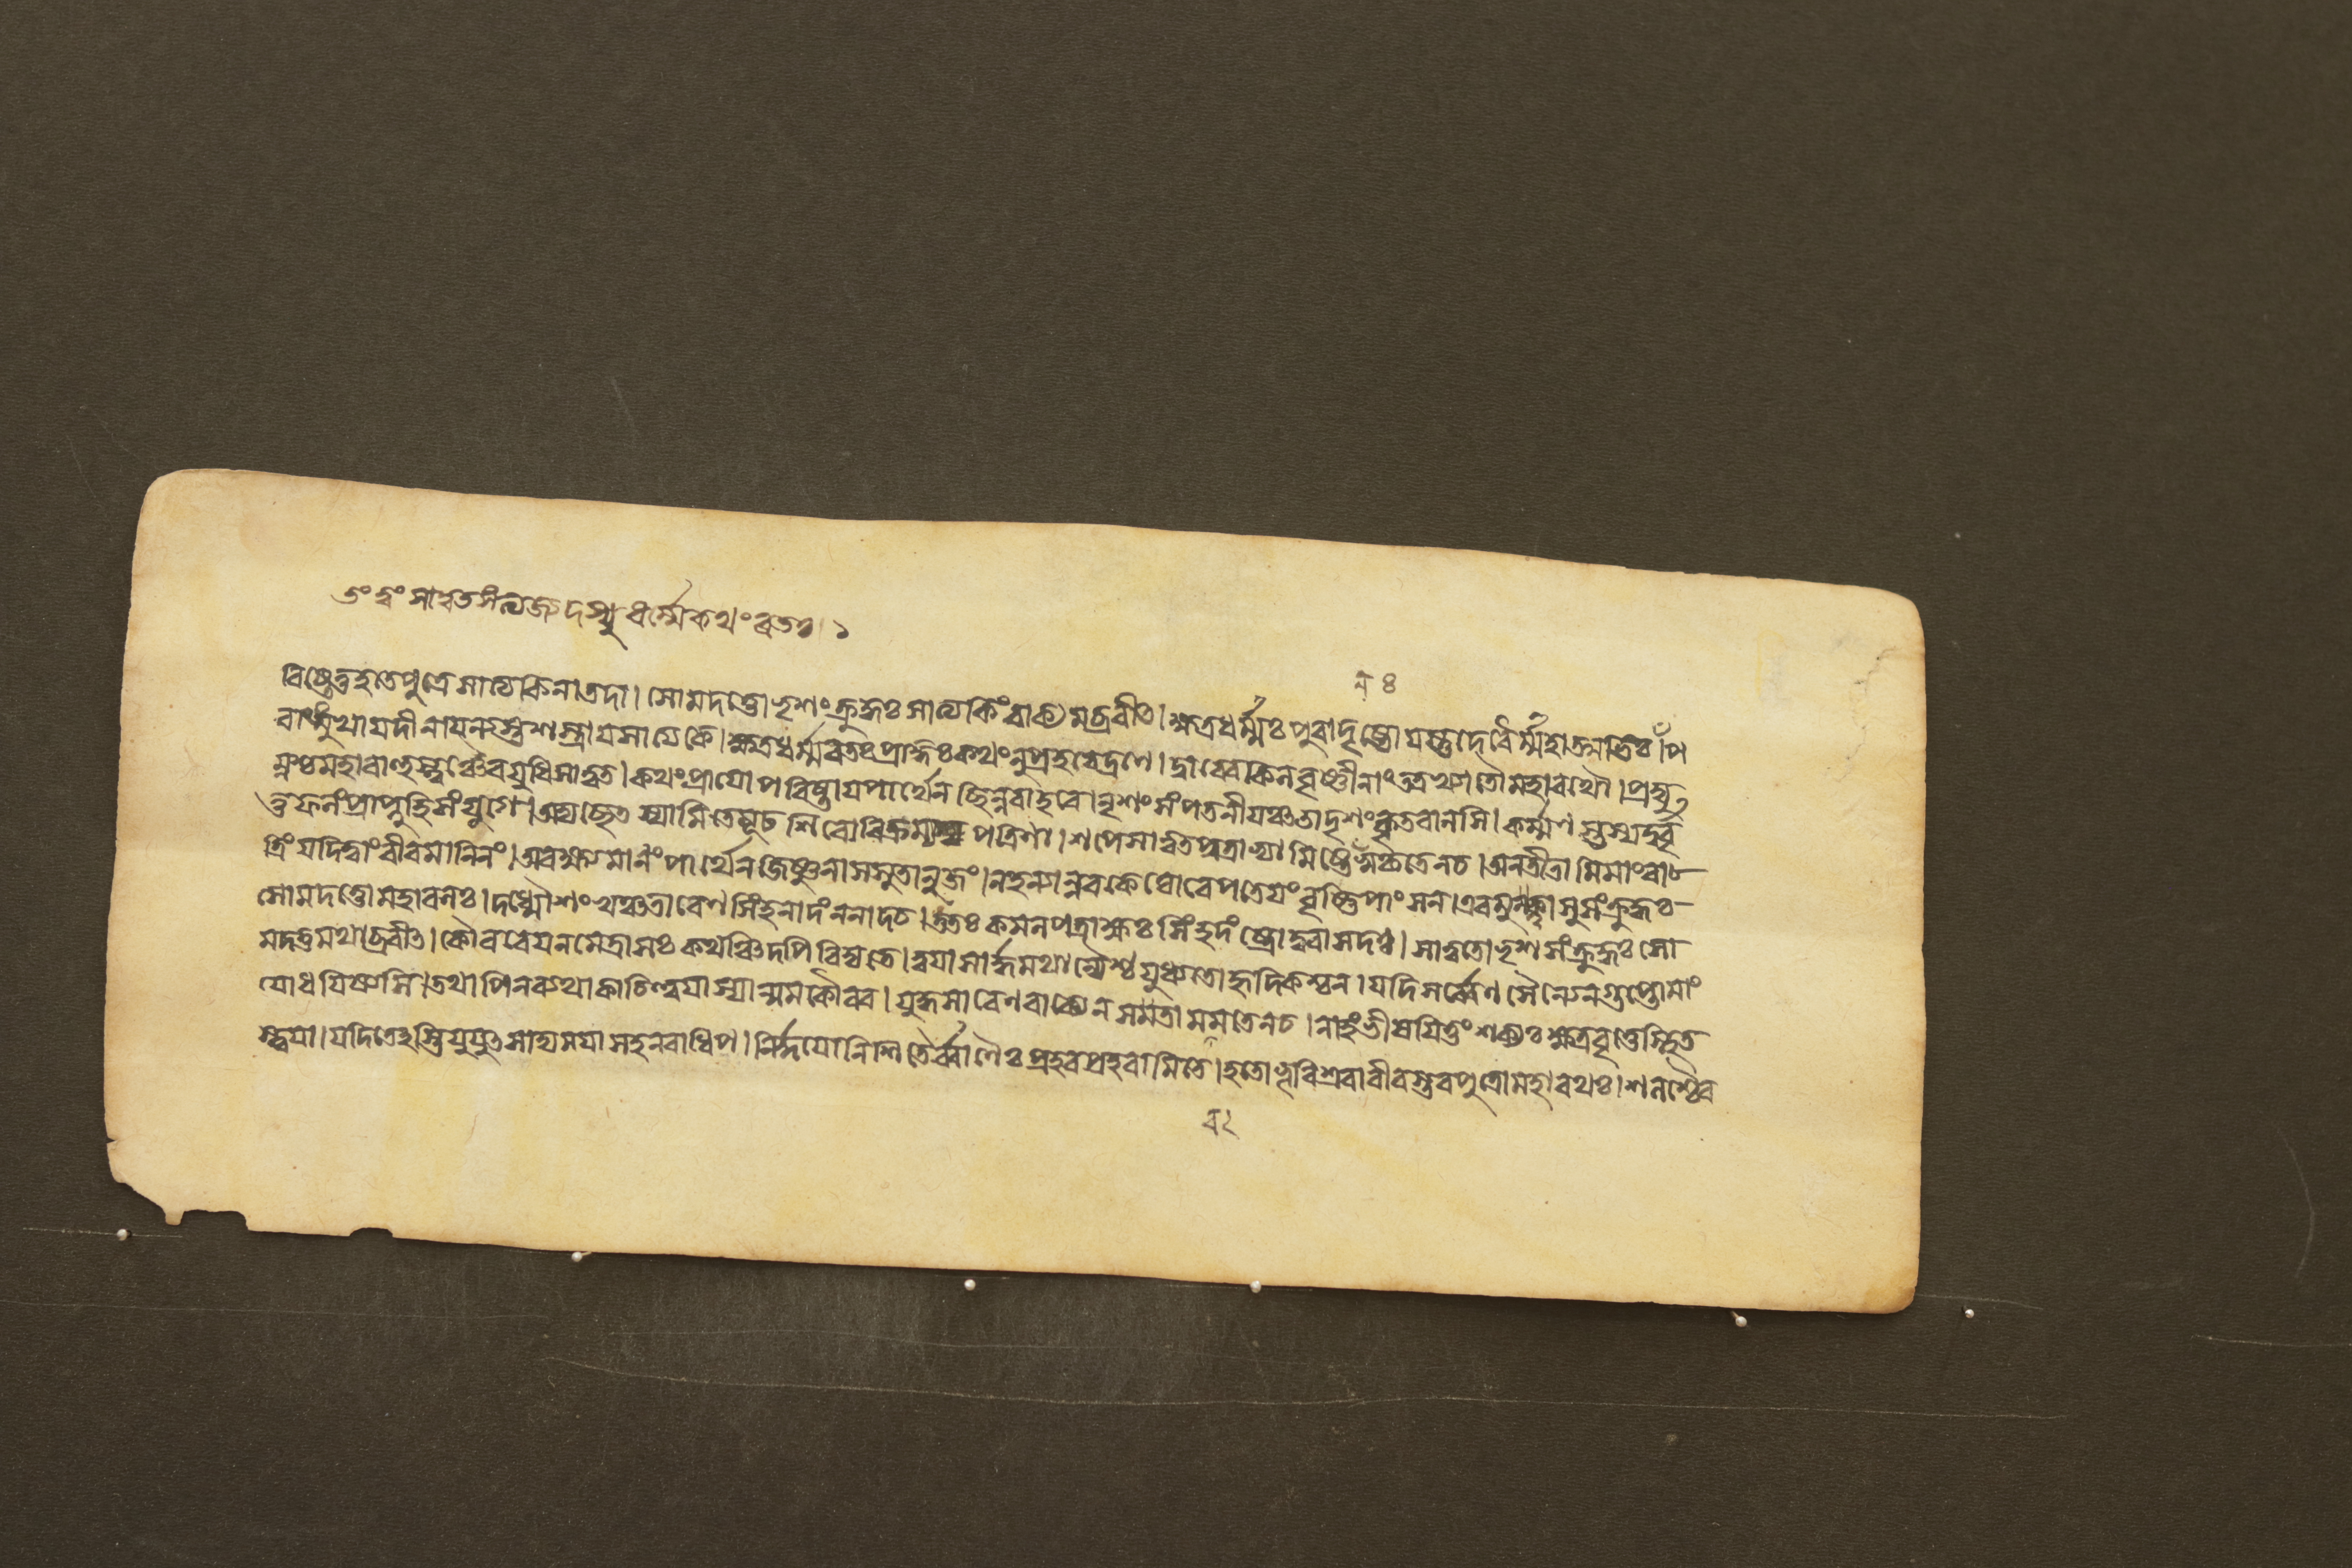 তং ত্বং সাত্বতসংত্যজ্যদস্যুধর্ম্মেকথংরতঃ। ১
৭ ৪
বিষ্টেতুহতেপুত্রেসাত্যকিনাতদা। সোমদত্তোভৃশংক্রুদ্ধঃসাত্যকিংবাক্যমব্রবীৎ। ক্ষত্রধর্ম্মঃপুরাদৃষ্টোযস্তুদেবৈর্ম্মহাত্মভিঃ। প
রাঙ্মুখাযদীনাযন্যস্তশস্ত্রাযসাত্যকে। ক্ষত্রধর্ম্মরতঃপ্রাজ্ঞঃকথংনুপ্রহরেদ্রণে। দ্বাবেবকিলবৃষ্ণীনাংতত্রখ্যাতৌমহারথৌ। প্রদ্যু
ম্নশ্চমহাবাহুস্ত্বঞ্চৈবযুধিসাত্বত। কথংপ্রাযোপবিষ্টাযপার্থেনছিন্নবাহবে। নৃশংসংপতনীযঞ্চতাদৃশংকৃতবানসি। কর্ম্মণস্তস্যদুর্বৃ
ত্তফলংপ্রাপ্নুহিসংযুগে। অদ্যছেৎস্যামিতেমূঢশিরোবিক্রম্যপত্রিণা। শপেসাত্বতপুত্রাভ্যামিষ্টেনসুকৃতেনচ। অনতীতামিমাংরা
ত্রিংযদিত্বাংবীরমানিনং। অরক্ষ্যমাণংপার্থেনজিষ্ণুনাসসুতানুজং। নহন্যান্নরকেঘোরেপতেযংবৃষ্ণিপাংসন। এবমুক্ত্বাসুসংক্রুদ্ধঃ
সোমদত্তোমহাবলঃ। দধ্মৌশংখঞ্চতারেণসিংহনাদংননাদচ। ততঃকমলপত্রাক্ষঃসিংহদংষ্ট্রোদুরাসদঃ। সাত্বতোভৃশসংক্রুদ্ধঃসো
মদত্তমথাব্রবীৎ। কৌরবেযনমেত্রাসঃকথঞ্চিদপিবিদ্যতে। ত্বযাসার্দ্ধমথান্যৈশ্চযুধ্যতোহৃদিকশ্চন। যদিসর্ব্বেণসৈন্যেনগুপ্তোমাং
যোধযিষ্যসি। তথাপিনব্যথাকাচিত্ত্বযাস্যান্মমকৌরব। যুদ্ধসারেণবাক্যেনসমতামমতেনচ। নাহংভীষযিতুংশক্যঃক্ষত্রবৃত্তেস্থিত
স্ত্বযা। যদিতেহস্তিযুযুৎসাদ্যমযাসহনরাধিপ। নির্দ্দযোনিশিতৈর্ব্বাণৈঃপ্রহরপ্রহরামিতে। হতোভূরিশ্রবাবীরস্তবপুত্রোমহারথঃ। শলশ্চৈব